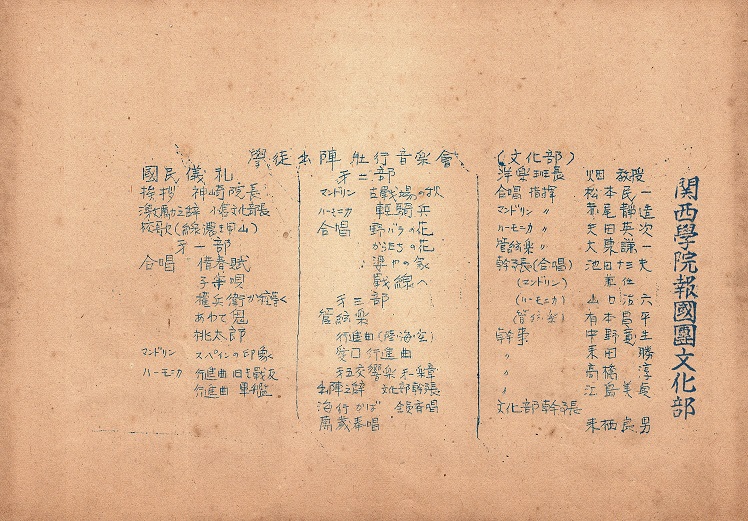 學徒出陣壮行音楽會
國民儀礼
挨拶 神崎院長
激励之辞 文化部長
校歌(緑濃き甲山)
才一部
合唱 惜春賦
子守唄
権兵衛が種蒔く
あわて鬼
桃太郎
マンドリン スペインの印象
ハーモニカ 行進曲 旧き戦友
行進曲 軍艦
才二部
マンドリン 古戦場の秋
ハーモニカ 軽騎兵
合唱 野バラの花
からたちの花
の家
戦線へ
才三部
管絃楽
行進曲(陸・海・空)
行進曲
才五交響楽 才一楽章
出陣之辞 文化部幹張
海行かば 全員斉唱
萬歳奉唱
(文化部)
洋楽班長 畑 教授
合唱 指揮 松本民一
マンドリン 〃 茅尾靜造
ハーモニカ 〃 史田英次
管絃楽 〃 大東謙一
幹張(合唱) 池田十三夫
(マンドリン)
(ハーモニカ) 山口治六
(管絃楽) 有本昌平
幹事 中野 生
〃 田勝
〃 高橋 淳
〃 江島美
文化部幹張
来栖 男
関西學院報國團文化部